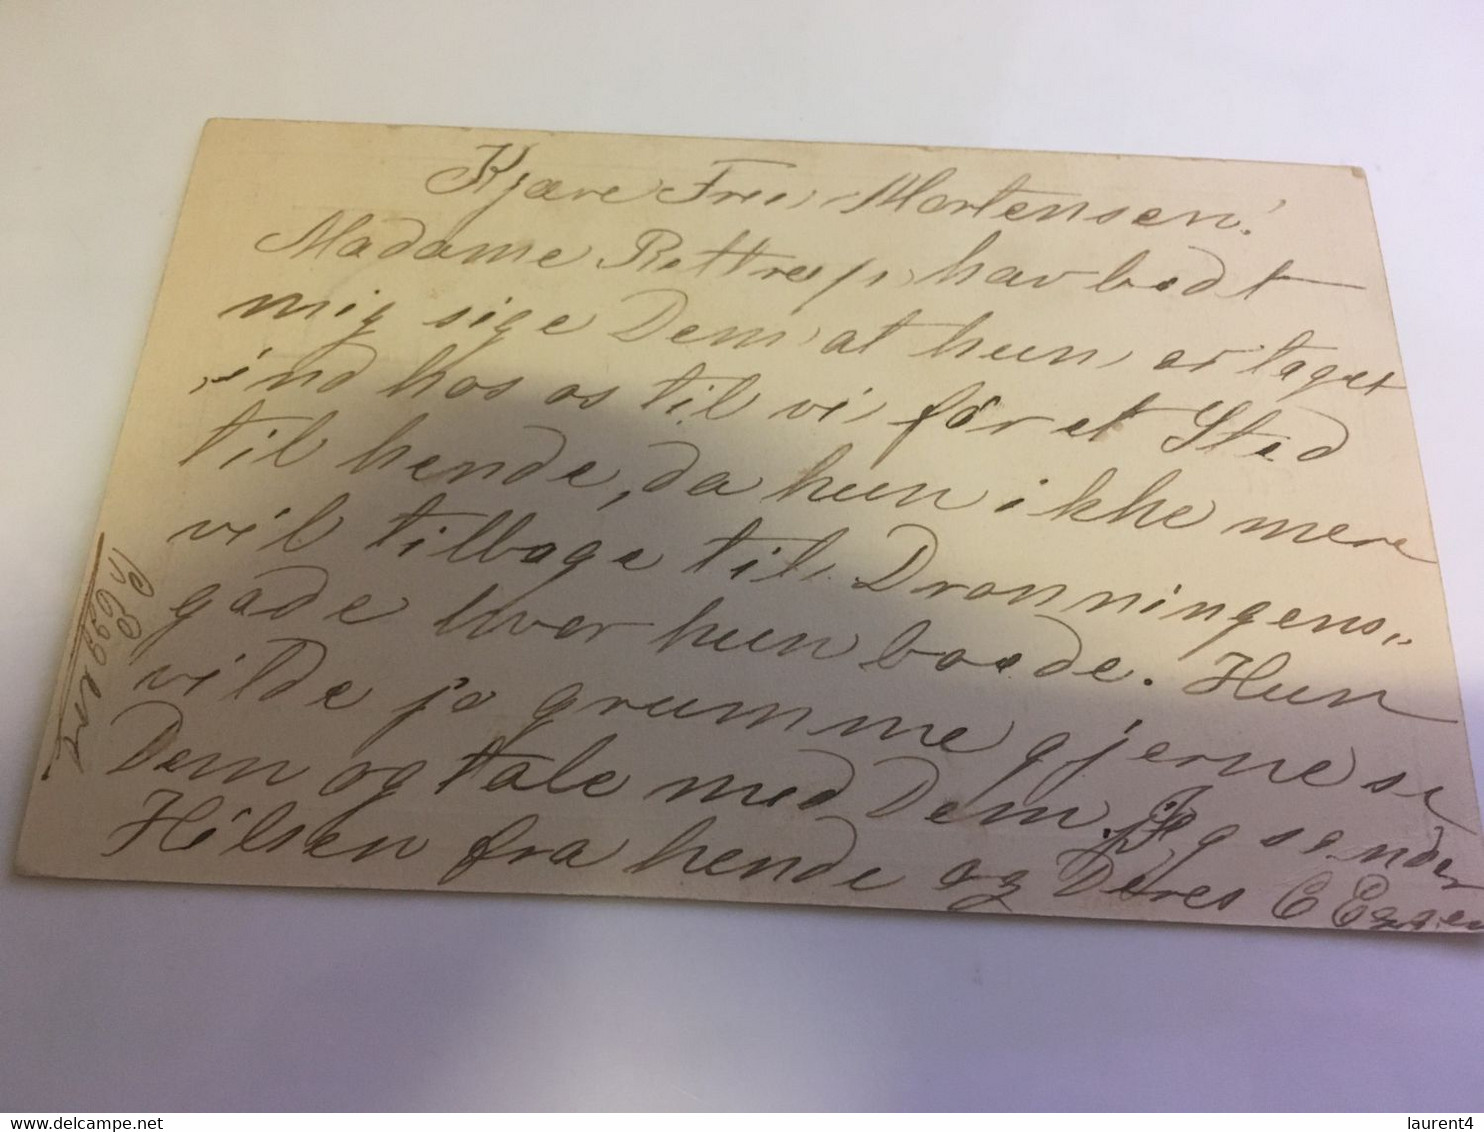 Kjære Fru Mortensen!
Madame Rettrup har bedt
mig sige Dem at hun er taget
ind hos os til vi får et Sted
til hende, da hun ikke mere
vil tilbage til Dronningens,,
gade hvor hun boede. Hun
vilde jo grumme gjerne se
Dem og tale med Dem. Jeg sender
Hilsen fra hende og Deres C E
laurent4